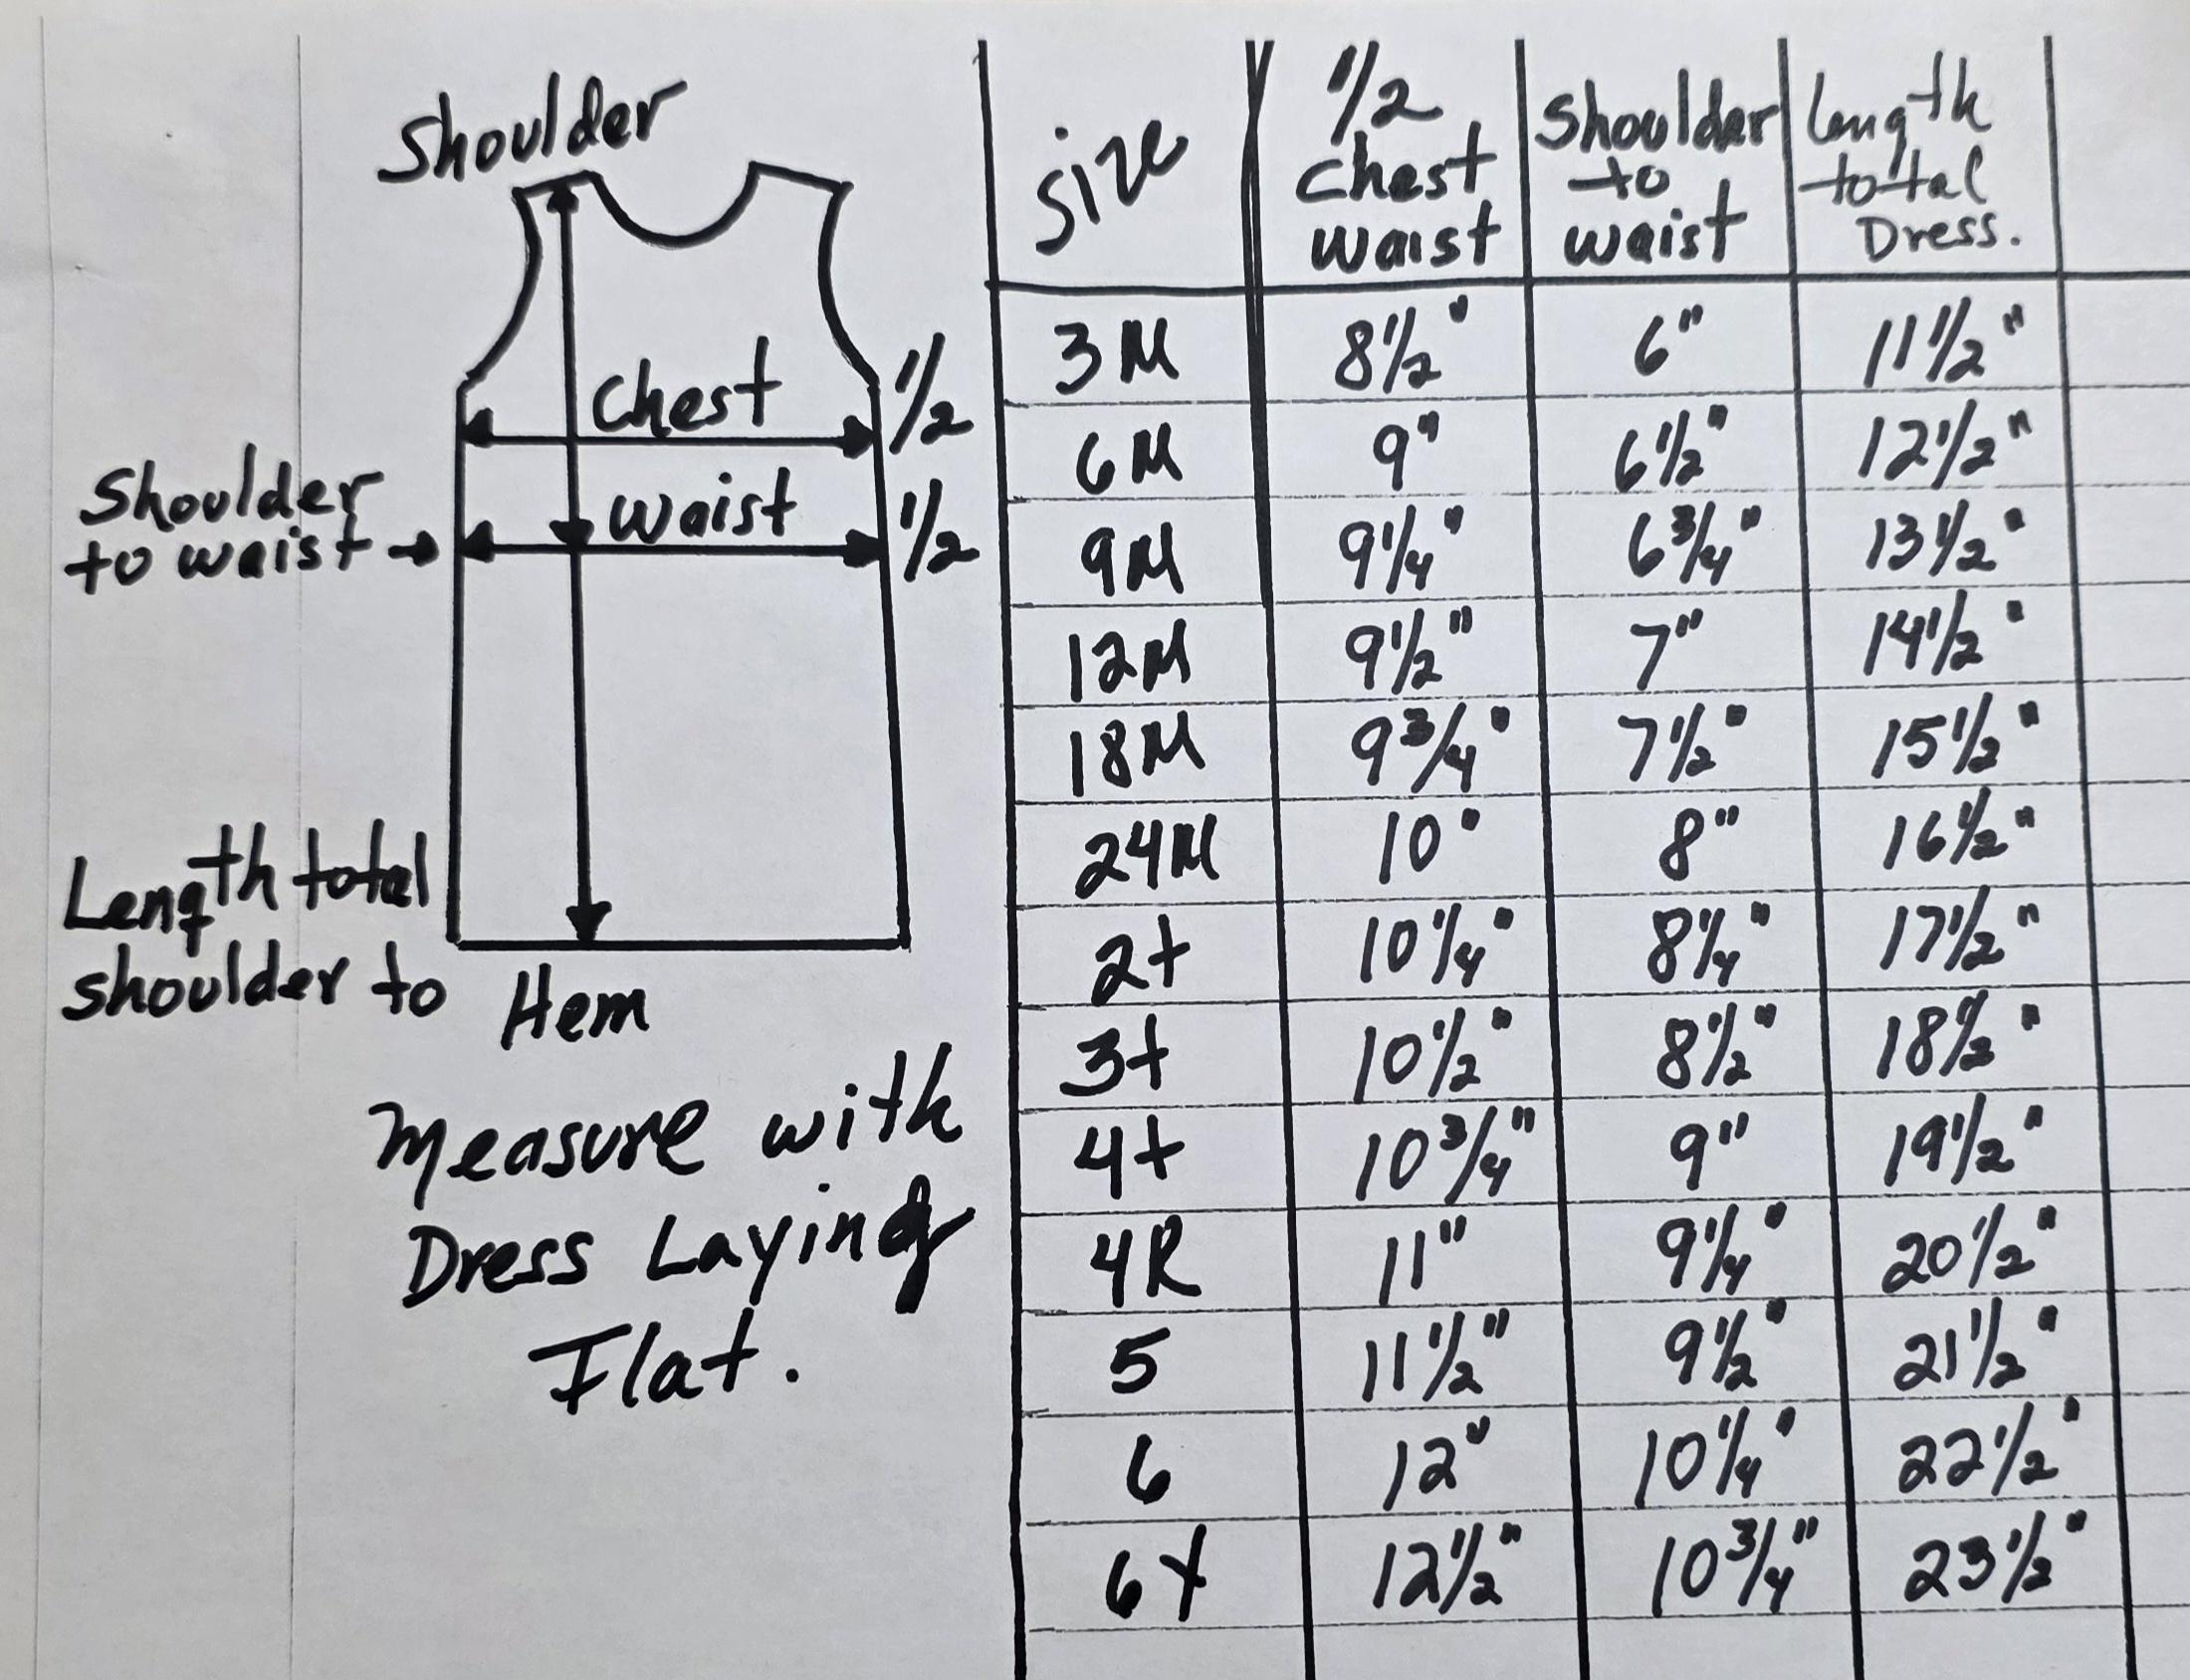 Shoulder
Chest 1/2
Waist 1/2
Shoulder
to waist
Length total
shoulder to Hem
Measure with
Dress Laying
Flat.
Size 1/2 Chest waist Shoulder to waist Length total Dress.
3M 8 1/2" 6" 11 1/2"
6M 9" 6 1/2" 12 1/2"
9M 9 1/4" 6 3/4" 13 1/2"
12M 9 1/2" 7" 14 1/2"
18M 9 3/4" 7 1/2" 15 1/2"
24M 10" 8" 16 1/2"
2t 10 1/4" 8 1/4" 17 1/2"
3t 10 1/2" 8 1/2" 18 1/2"
4t 10 3/4" 9" 19 1/2"
4R 11" 9 1/4" 20 1/2"
5 11 1/2" 9 1/2" 21 1/2"
6 12" 10 1/4" 22 1/2"
6X 12 1/2" 10 3/4" 23 1/2"